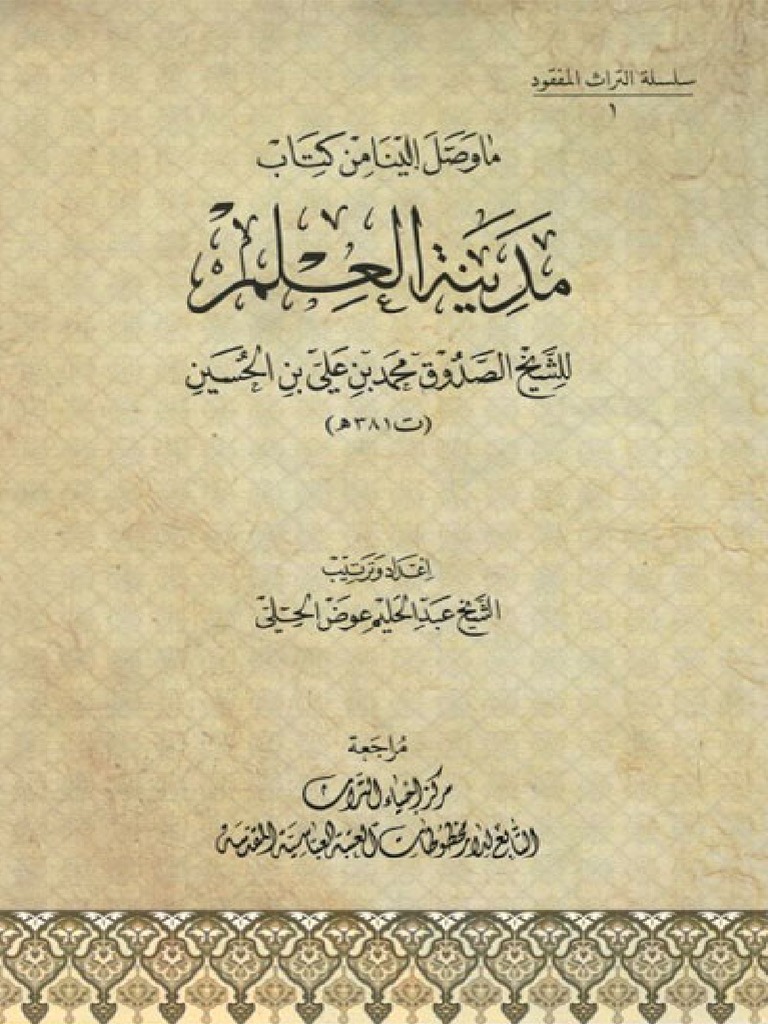 سلسلة التراث المفقود
١
مَا وَصَلَ إِلَينَا مِن كِتَابْ
مَدِينَة العِلم
لِلشَّيْخِ الصَّدُوْق محمد بْنِ عَلِيّ بْنِ الْحُسَينِ
(ت ٣٨١هـ)
إِعْدَاد وَتَرْتِيْب
الشَّيْخ عَبْد الحَلِيْم عوض الحِلِّيّ
مُرَاجَعَة
مركز إحياء التراث
التابع لدار مخطوطات العتبة العباسية المقدسة